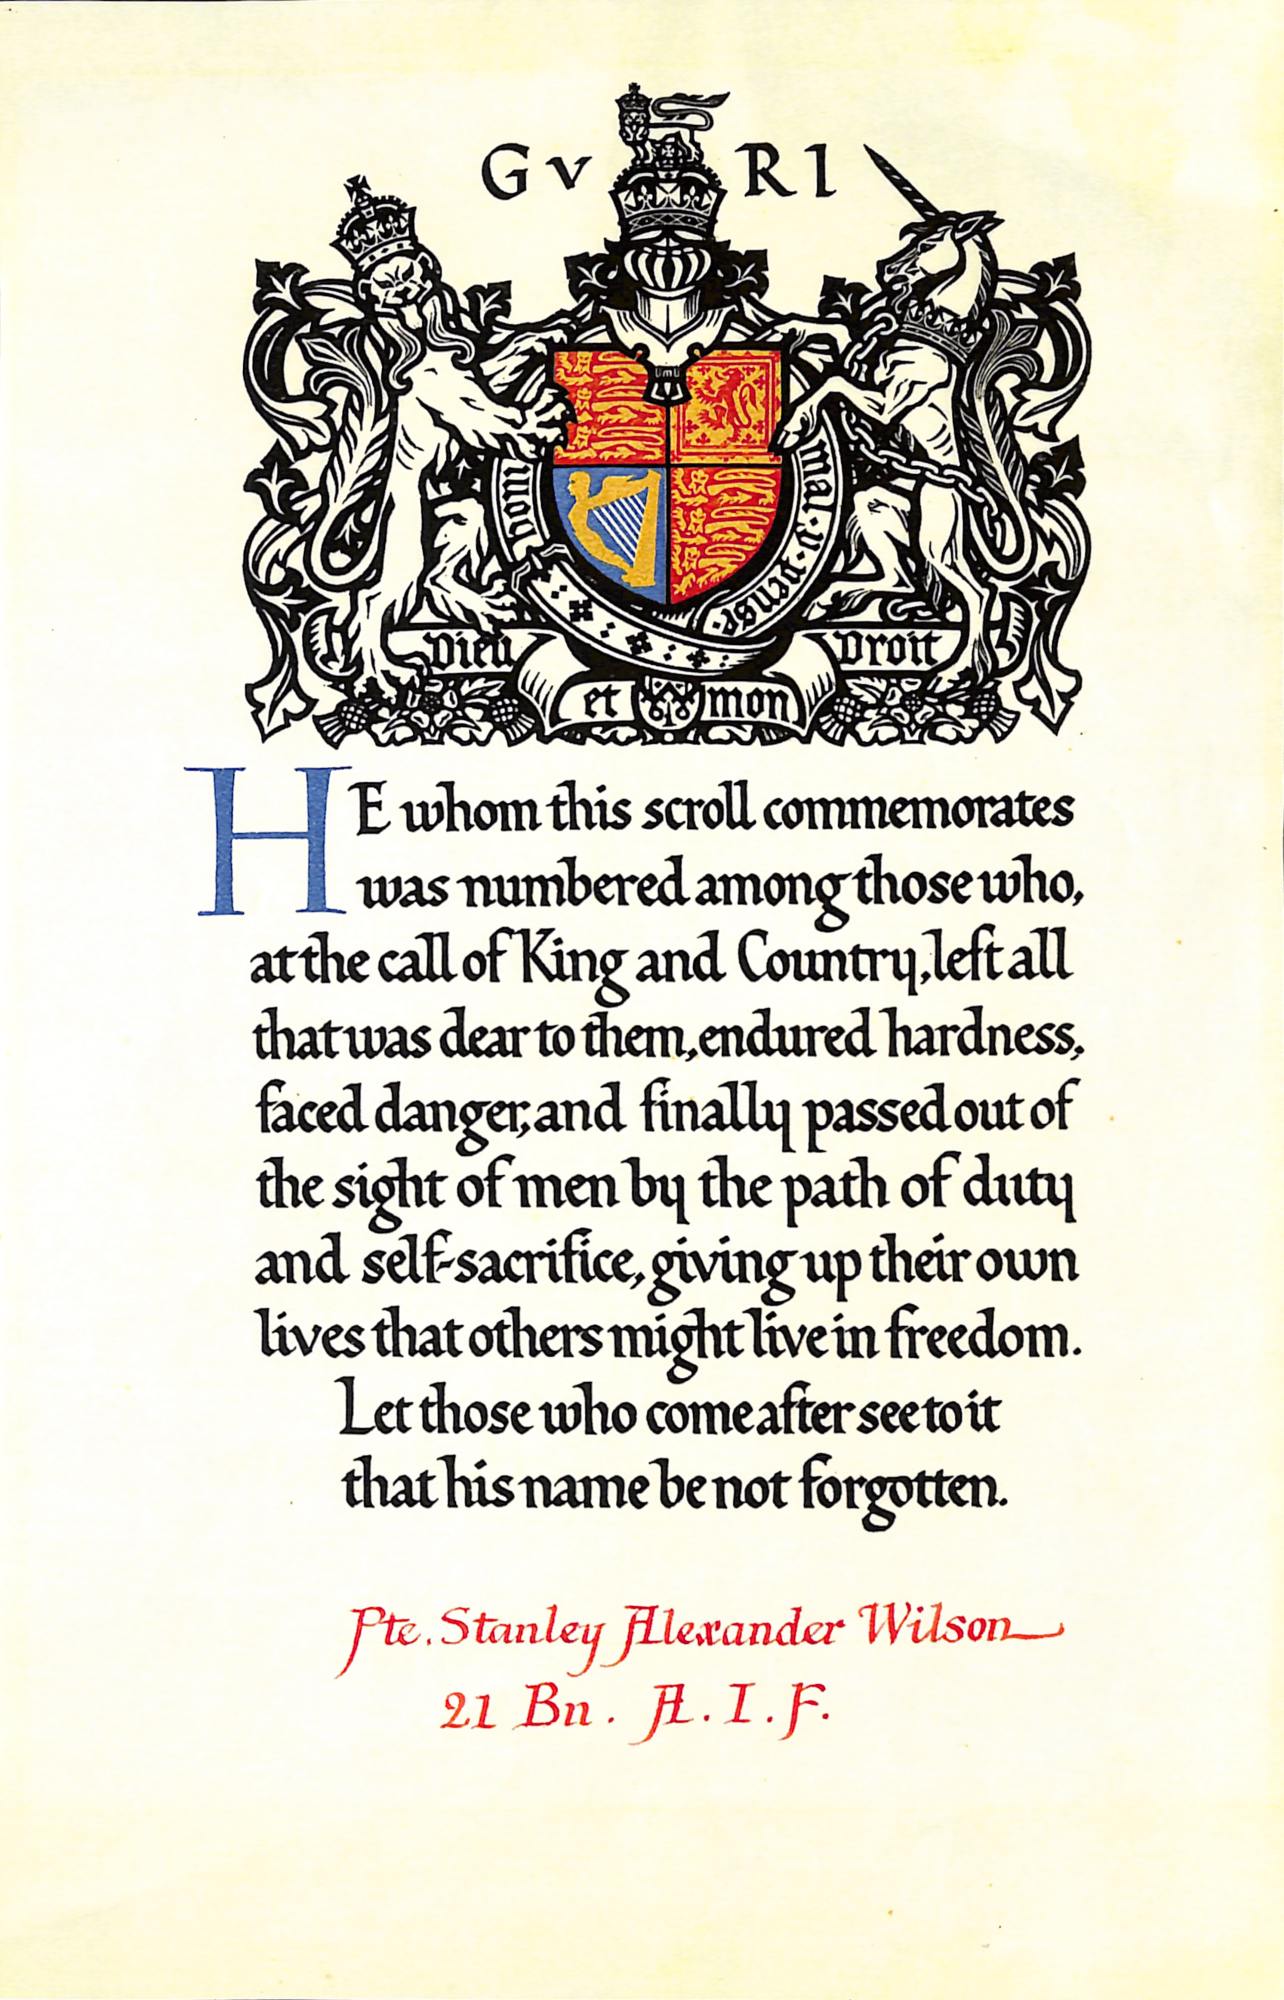 GV RI
honi
mal·y·pense·
Dieu
Droit
et mon
HE whom this scroll commemorates
was numbered among those who,
at the call of King and Country, left all
that was dear to them, endured hardness,
faced danger, and finally passed out of
the sight of men by the path of duty
and self-sacrifice, giving up their own
lives that others might live in freedom.
Let those who come after see to it
that his name be not forgotten.
Pte. Stanley Alexander Wilson
21 Bn. A.I.F.